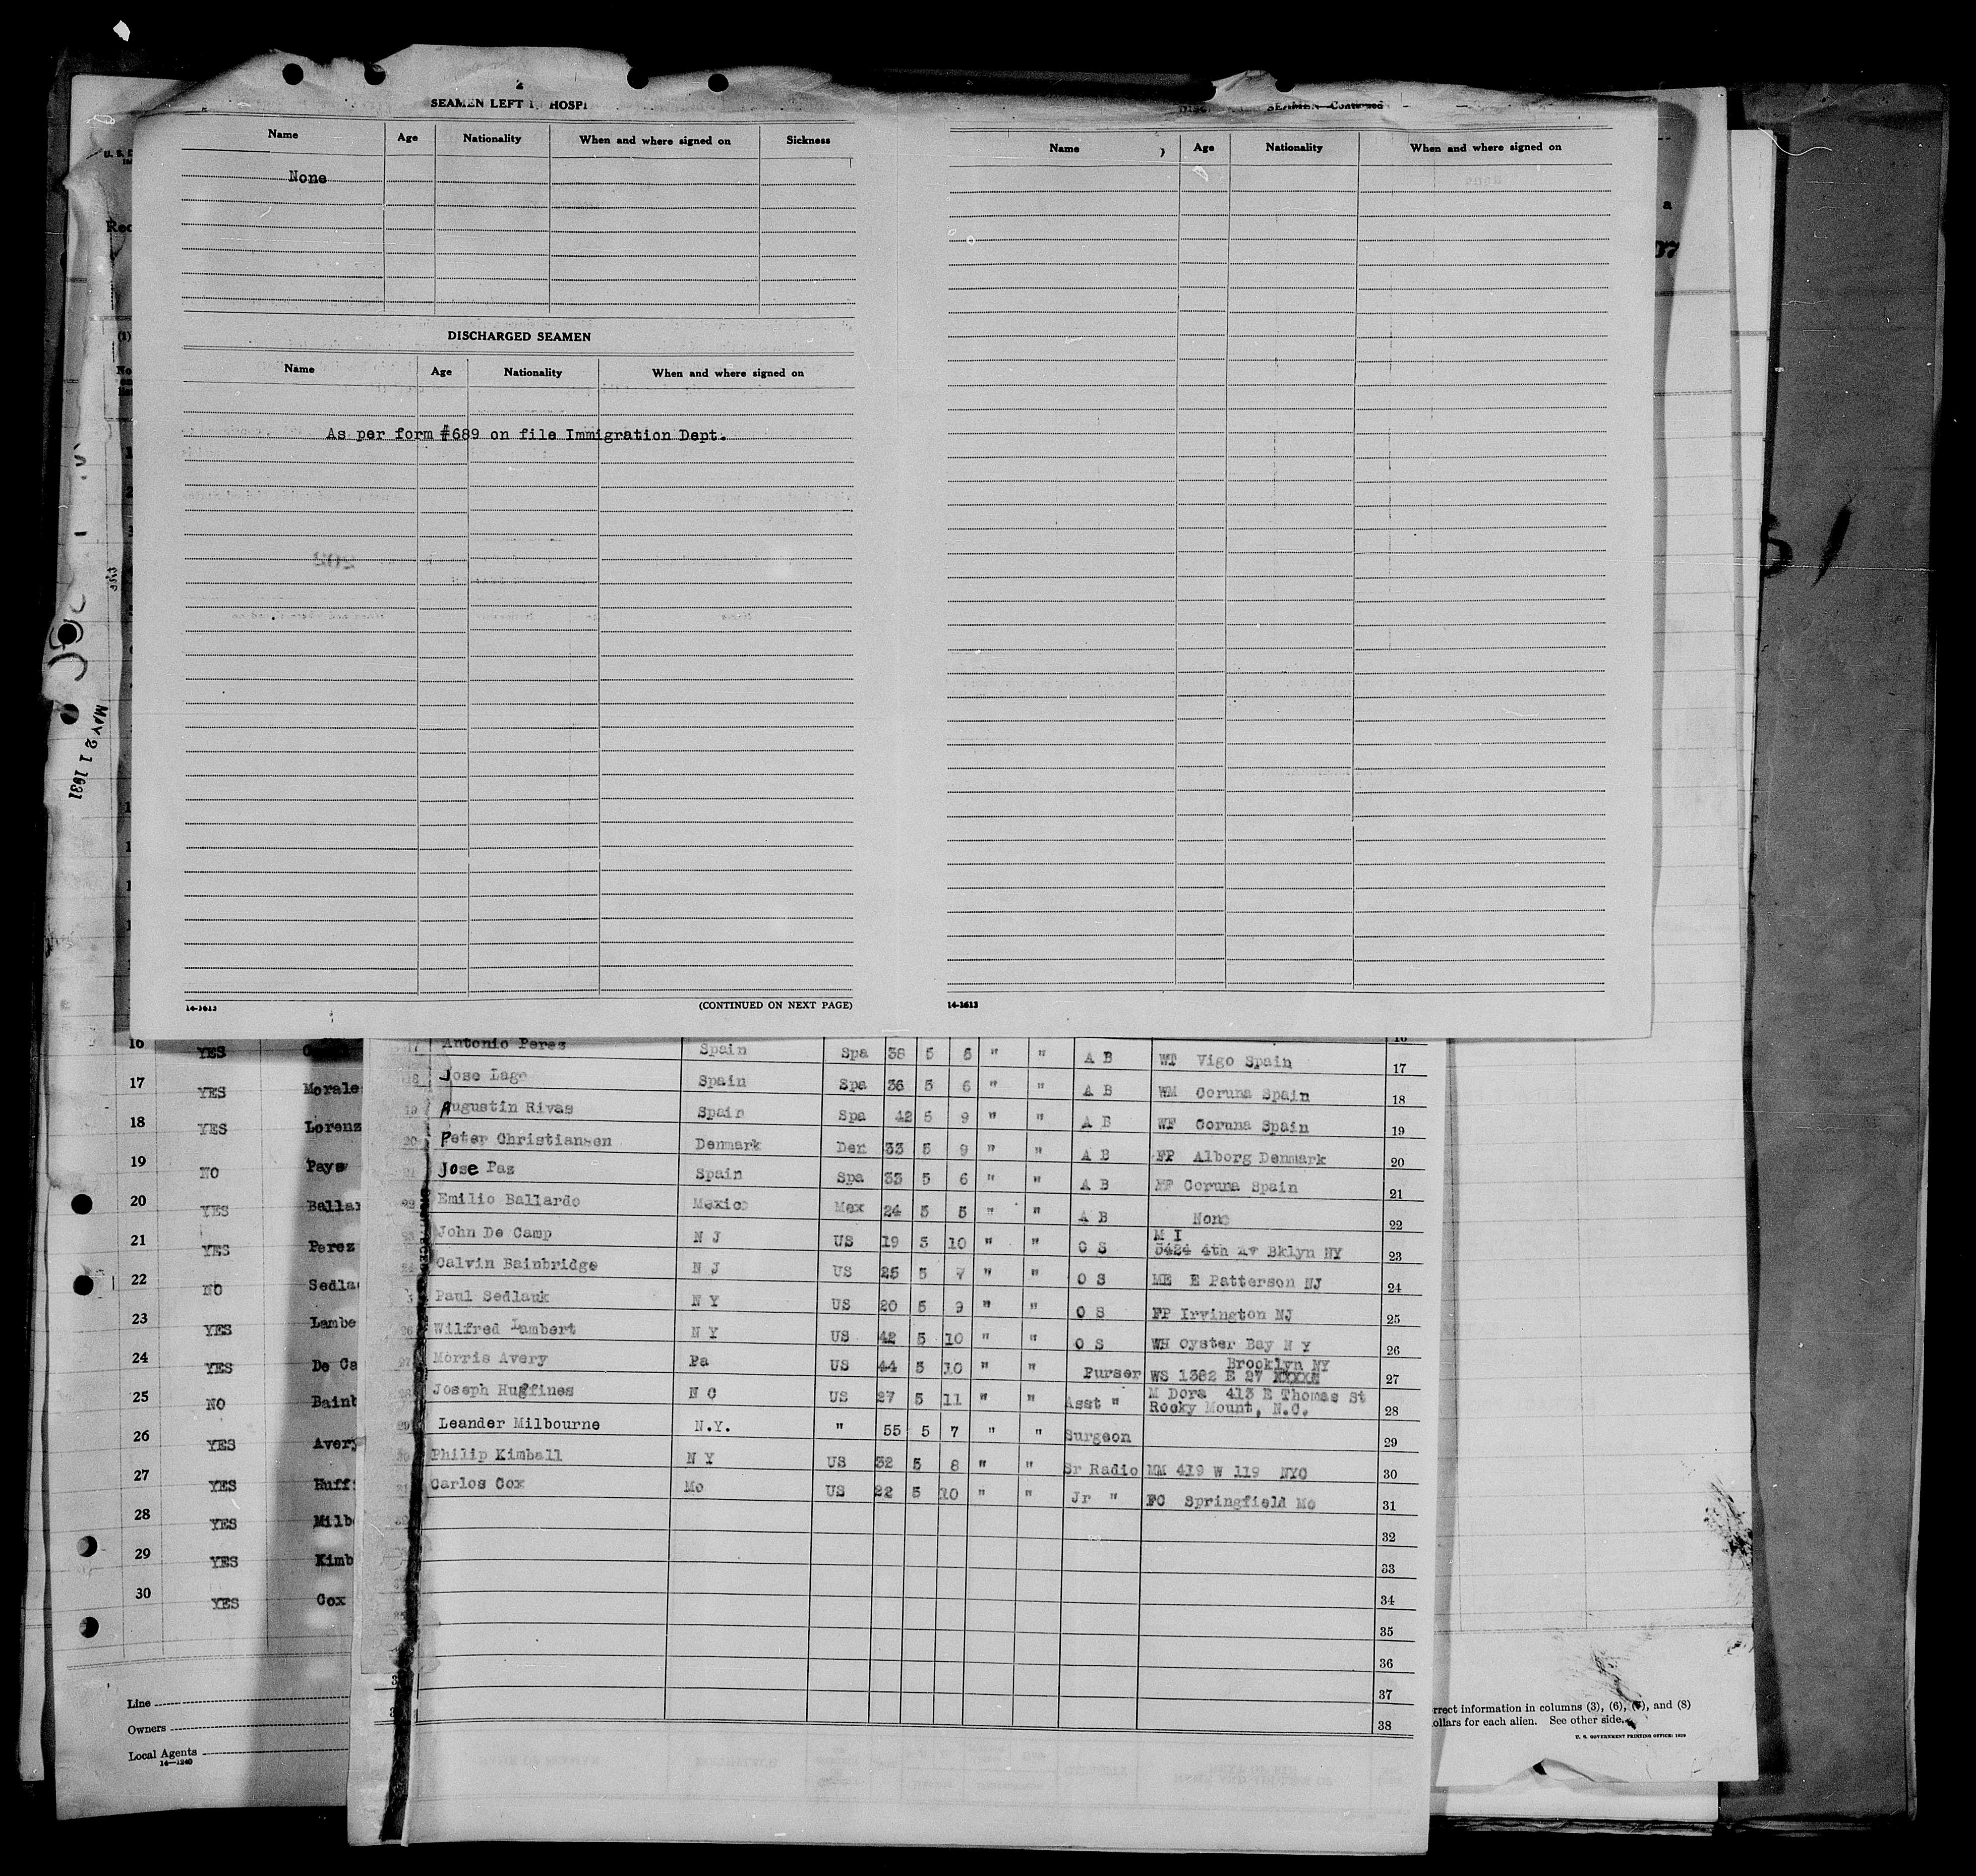 2
SEAMEN LEFT HOSPI
Name Age Nationality When and where signed on Sickness
None
DISCHARGED SEAMEN
Name Age Nationality When and where signed on
As per form #689 on file Immigration Dept.
14-1613 (CONTINUED ON NEXT PAGE)
SEAMEN—Continued
Name Age Nationality When and where signed on
14-1613
MAY 21 1931
16 YES
17 YES Morale
18 YES Lorenz
19 NO Pays
20 YES Ballar
21 YES Perez
22 NO Sedla
23 YES Lambe
24 YES De Ca
25 NO Bainb
26 YES Avery
27 YES Huff
28 YES Milb
29 YES Kimb
30 YES Cox
Line
Owners
Local Agents
14—1240
17 Antonio Perez Spain Spa 38 5 8 " " A B WT Vigo Spain 17
18 Jose Lage Spain Spa 36 5 6 " " A B WM Coruna Spain 18
19 Augustin Rivas Spain Spa 42 5 9 " " A B WF Coruna Spain 19
20 Peter Christiansen Denmark Den 33 5 9 " " A B FP Alborg Denmark 20
21 Jose Paz Spain Spa 33 5 6 " " A B Coruna Spain 21
22 Emilio Ballardo Mexico Mex 24 5 5 " " A B None 22
John De Camp N J US 19 5 10 " " O S M I 5424 4th Av Bklyn NY 23
Calvin Bainbridge N J US 25 5 7 " " O S ME E Patterson NJ 24
Paul Sedlauk N Y US 20 5 9 " " O S FP Irvington NJ 25
26 Wilfred Lambert N Y US 42 5 10 " " O S WH Oyster Bay N Y 26
27 Morris Avery Pa US 44 5 10 " " Purser WS 1362 E 27 XXXXX Brooklyn NY 27
Joseph Huffines N C US 27 5 11 " " Asst " M Dora 413 E Thomas St Rocky Mount, N.C. 28
29 Leander Milbourne N.Y. " 55 5 7 " " Surgeon 29
30 Philip Kimball N Y US 32 5 8 " " Sr Radio MM 419 W 119 NYC 30
Carlos Cox Mo US 22 5 10 " " Jr " FC Springfield Mo 31
32
33
34
35
36
37
38
rrect information in columns (3), (6), (7), and (8)
ollars for each alien. See other side.
U. S. GOVERNMENT PRINTING OFFICE: 1929